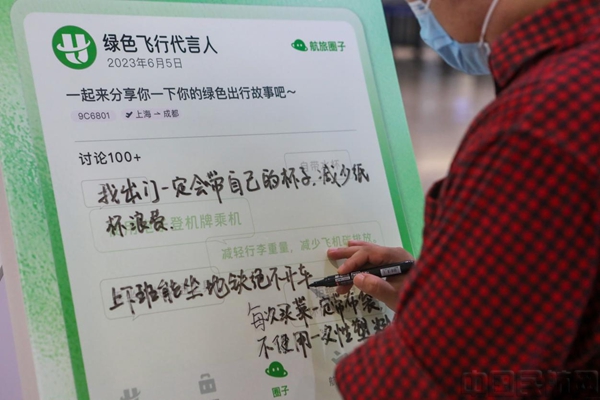 绿色飞行代言人
航旅圈子
2023年6月5日
一起来分享你一下你的绿色出行故事吧～
9C6801
上海 → 成都
讨论100+
找出门一定会带自己的杯子.减少纸
杯浪费.
登机牌乘机
减轻行李重量，减少飞机碳排放。
上下班能坐地铁绝不开车
每次买菜一定带布袋
不使用一次性塑料
圈子